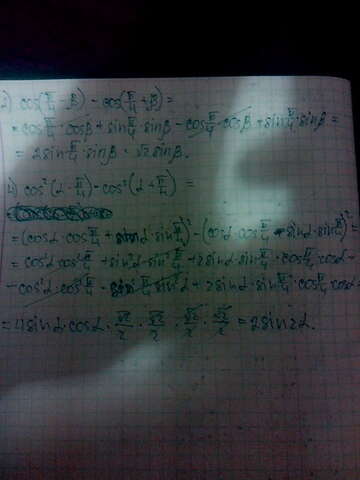 2) cos(π/4 - β) - cos(π/4 + β) =
= cos π/4 · cosβ + sin π/4 · sinβ - cos π/4 · cosβ + sin π/4 · sinβ =
= 2sin π/4 · sinβ = √2 sinβ.
4) cos²(α - π/4) - cos²(α + π/4) =
= (cosα · cos π/4 + sinα · sin π/4)² - (cosα · cos π/4 - sinα · sin π/4)² =
= cos²α · cos² π/4 + sin²α · sin² π/4 + 2sinα · sin π/4 · cos π/4 · cosα -
- cos²α · cos² π/4 - sin² π/4 · sin²α + 2sinα · sin π/4 · cos π/4 · cosα =
= 4sinα · cosα · √2/2 · √2/2 · √2/2 · √2/2 = 2sin2α.